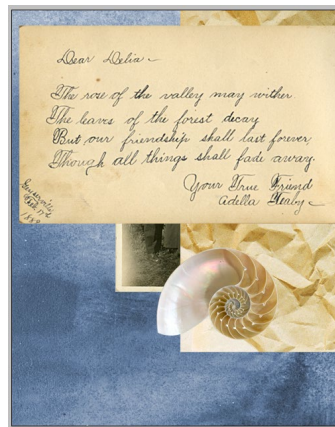 Dear Delia
The rose of the valley may wither
The leaves of the forest decay
But our friendship shall last forever
Though all things shall fade away.
Your True Friend
Adella